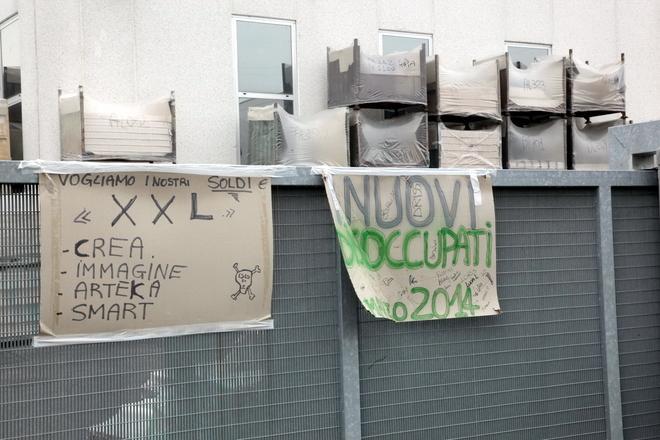 VOGLIAMO I NOSTRI SOLDI E
" XXL "
- CREA.
- IMMAGINE
- ARTEKA
- SMART
NUOVI
DISOCCUPATI
2014